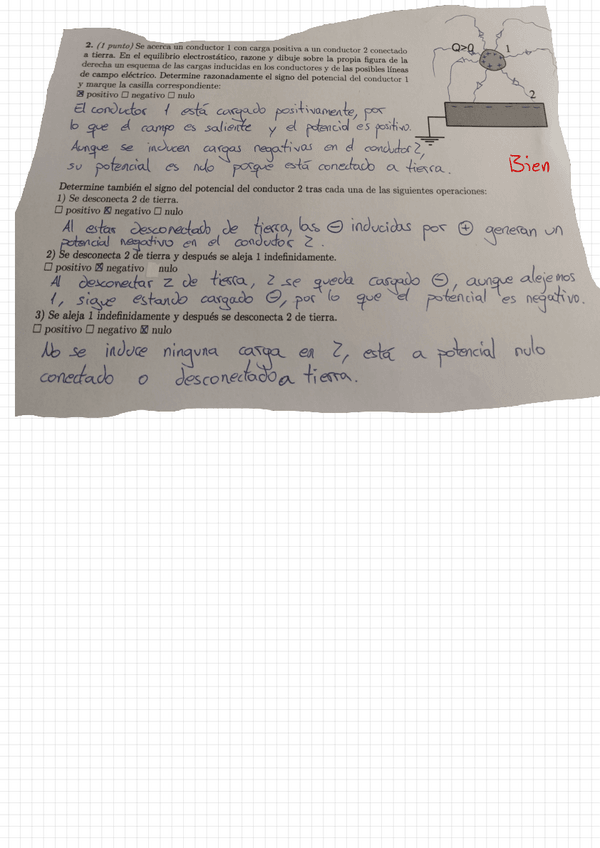 2. (1 punto) Se acerca un conductor 1 con carga positiva a un conductor 2 conectado
a tierra. En el equilibrio electrostático, razone y dibuje sobre la propia figura de la
derecha un esquema de las cargas inducidas en los conductores y de las posibles líneas
de campo eléctrico. Determine razonadamente el signo del potencial del conductor 1
y marque la casilla correspondiente:
☒ positivo ☐ negativo ☐ nulo
Q>0 1
2
El conductor 1 está cargado positivamente, por
lo que el campo es saliente y el potencial es positivo.
Aunque se inducen cargas negativas en el conductor 2,
su potencial es nulo porque está conectado a tierra.
Bien
Determine también el signo del potencial del conductor 2 tras cada una de las siguientes operaciones:
1) Se desconecta 2 de tierra.
☐ positivo ☒ negativo ☐ nulo
Al estar desconectado de tierra, las ⊖ inducidas por ⊕ generan un
potencial negativo en el condutor 2.
2) Se desconecta 2 de tierra y después se aleja 1 indefinidamente.
☐ positivo ☒ negativo nulo
Al desconectar 2 de tierra, 2 se queda cargado ⊖, aunque alejemos
1, sigue estando cargado ⊖, por lo que el potencial es negativo.
3) Se aleja 1 indefinidamente y después se desconecta 2 de tierra.
☐ positivo ☐ negativo ☒ nulo
No se induce ninguna carga en 2, está a potencial nulo
conectado o desconectado a tierra.